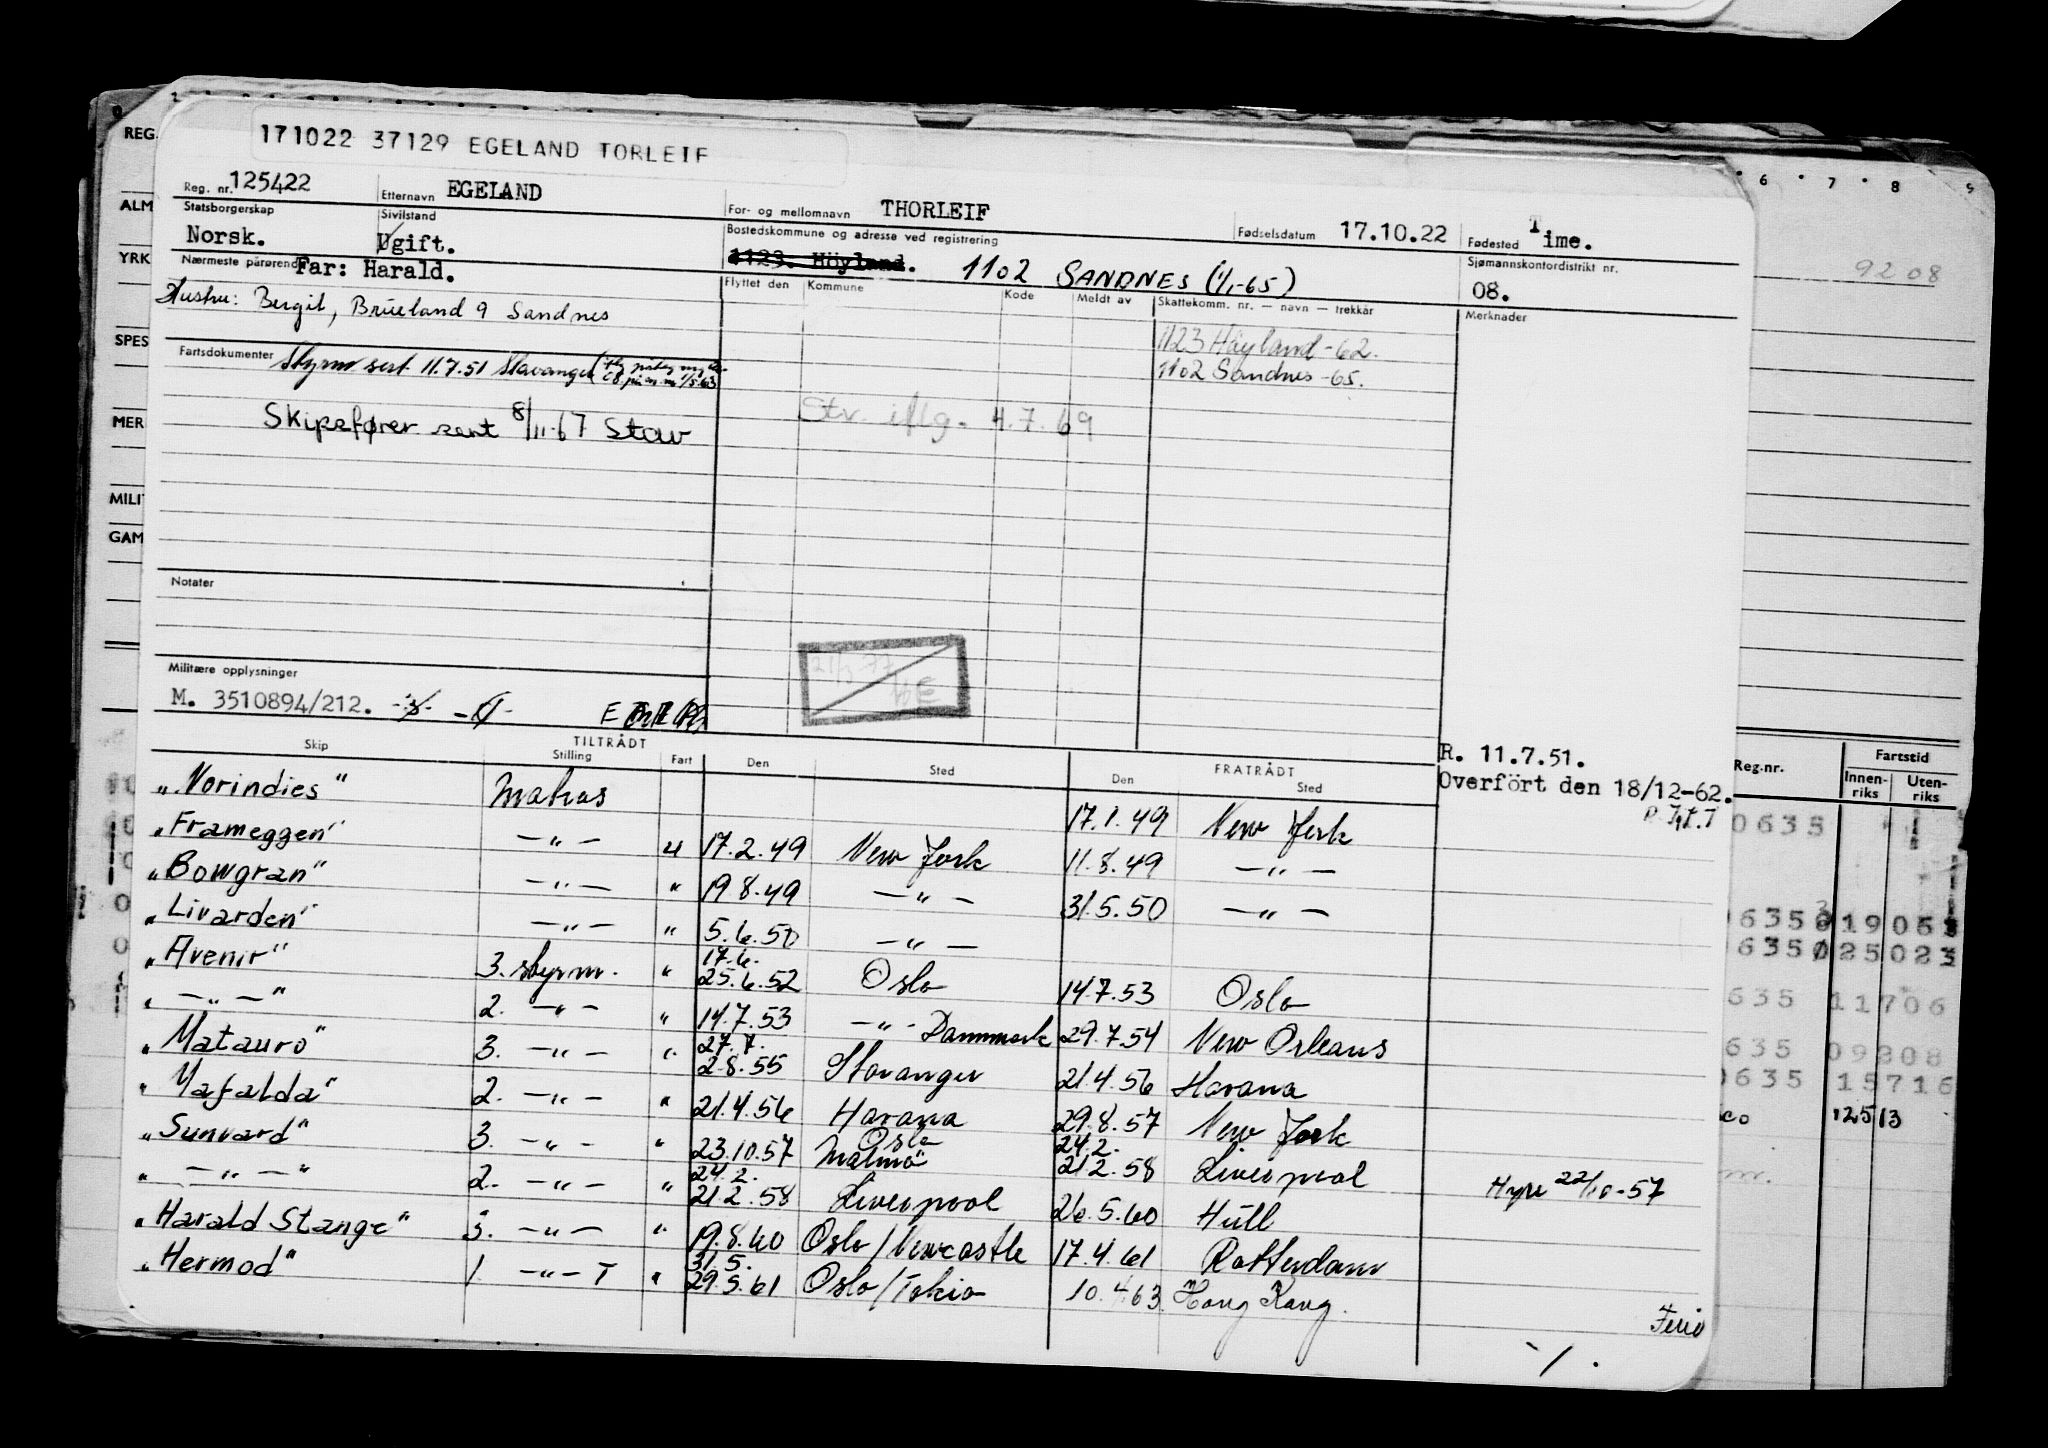 171022 37129 EGELAND TORLEIF
Reg. nr. 125422 Etternavn EGELAND For- og mellomnavn THORLEIF Fødselsdatum 17.10.22 Fødested Time.
Statsborgerskap Norsk. Sivilstand Ugift. Bostedskommune og adresse ved registrering 1123. Höyland. 1102 SANDNES (1/1-65) Sjømannskontordistrikt nr. 08.
Nærmeste pårørende Far: Harald.
Hustru: Bergit, Brueland 9 Sandnes
Flyttet den Kommune Kode Meldt av Skattekomm. nr. — navn — trekkår Merknader
1123 Höyland -62.
1102 Sandnes -65.
Fartsdokumenter Styrm sert. 11.7.51 Stavanger
Skipsfører sert 8/11-67 Stav
Stv. iflg. 4.7.69
Notater
Militære opplysninger
M. 3510894/212.
21/3-77
R. 11.7.51.
Overfört den 18/12-62.
Skip TILTRÅDT Stilling Fart Den Sted FRATRÅDT Den Sted
"Norindies" Matros 17.1.49 New York
"Frameggen" —"— u 17.2.49 New York 11.8.49 —"—
"Bowgran" —"— " 19.8.49 —"— 31.5.50 —"—
"Livarden" —"— " 5.6.50 —"—
"Avenir" 3. styrm. " 17.6. 25.6.52 Oslo 14.7.53 Oslo
"—"—" 2. —"— " 14.7.53 —"— Danmark 29.7.54 New Orleans
"Matauro" 3. —"— " 27.7. 2.8.55 Stavanger 21.4.56 Havana
"Mafalda" 2. —"— " 21.4.56 Havana 29.8.57 New York
"Sunvard" 3. —"— " 23.10.57 Oslo Malmö 24.2. 21.2.58 Liverpool Hyre 22/10-57
"—"—" 2. —"— " 24.2. 21.2.58 Liverpool 26.5.60 Hull
"Harald Stange" 3. —"— " 19.8.60 Oslo/Newcastle 17.4.61 Rotterdam
"Hermod" 1 —"— T " 31.5. 29.5.61 Oslo/Tokio 10.4.63. Hong Kong. Ferie
REG.
ALM
YRK
SPES
MER
MILI
GAM
6 7 8
9208
Reg.nr. Fartstid
Innen-riks Uten-riks
0635
635 11706
635 09208
0635 15716
12513